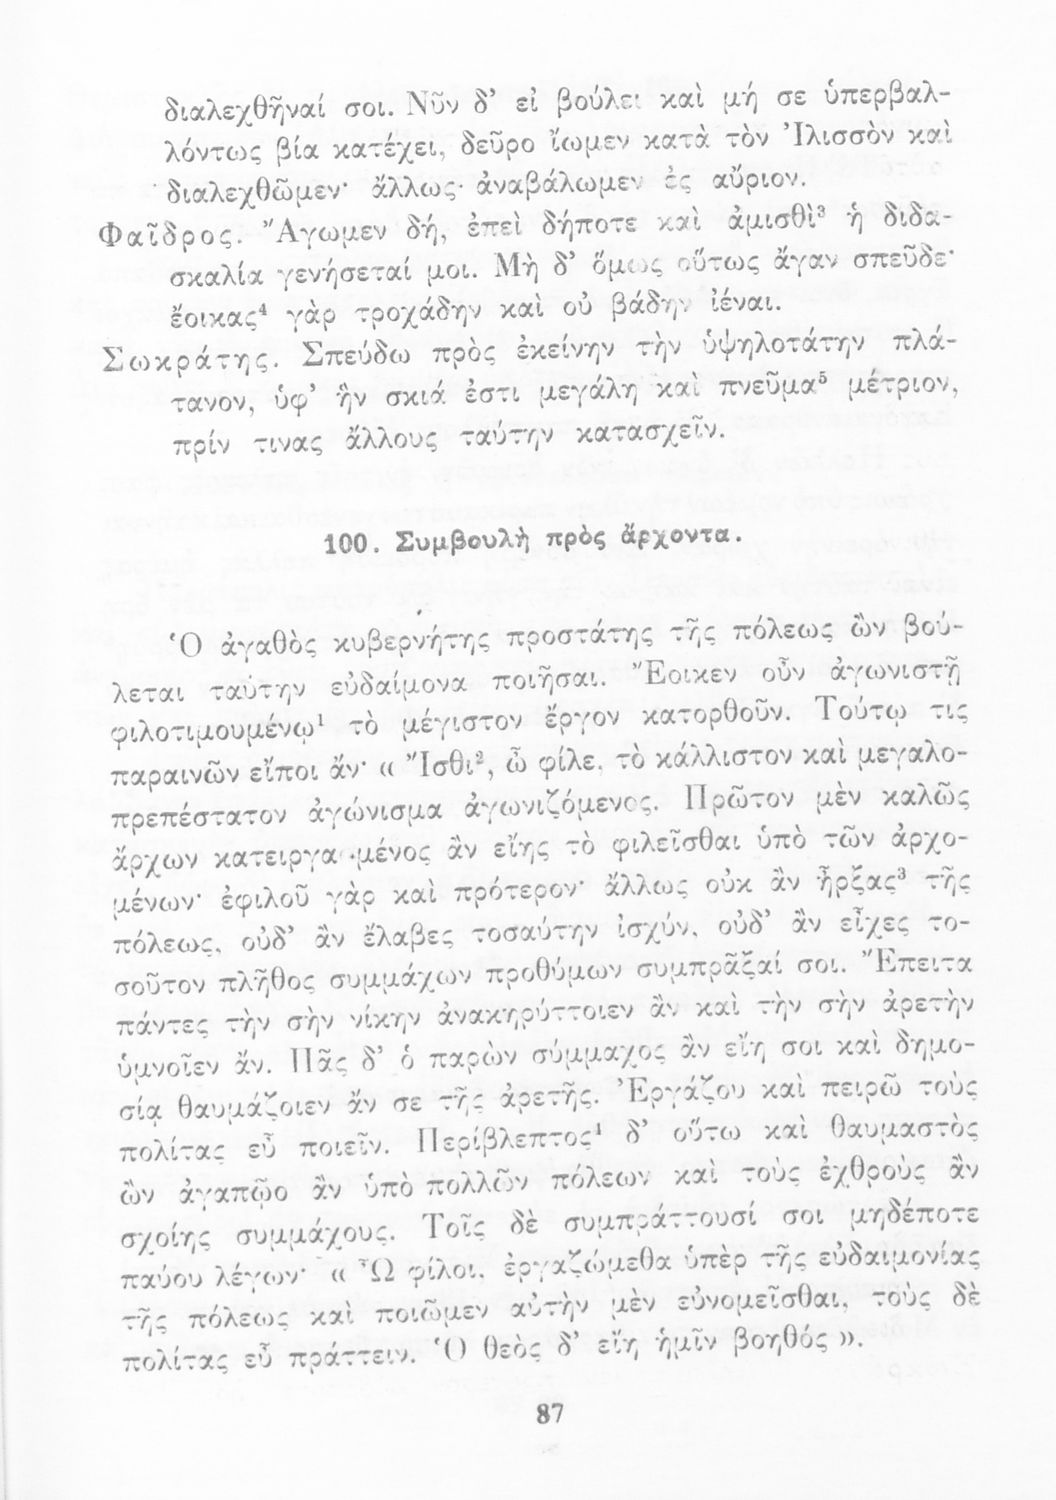 διαλεχθῆναί σοι. Νῦν δ’ εἰ βούλει καὶ μή σε ὑπερβαλ-
λόντως βία κατέχει, δεῦρο ἴωμεν κατὰ τὸν Ἰλισσὸν καὶ
διαλεχθῶμεν· ἄλλως ἀναβάλωμεν ἐς αὔριον.
Φαῖδρος. Ἄγωμεν δή, ἐπεὶ δήποτε καὶ ἀμισθὶ³ ἡ διδα-
σκαλία γενήσεταί μοι. Μὴ δ’ ὅμως οὕτως ἄγαν σπεῦδε·
ἔοικας⁴ γὰρ τροχάδην καὶ οὐ βάδην ἰέναι.
Σωκράτης. Σπεύδω πρὸς ἐκείνην τὴν ὑψηλοτάτην πλά-
τανον, ὑφ’ ἣν σκιά ἐστι μεγάλη καὶ πνεῦμα⁵ μέτριον,
πρίν τινας ἄλλους ταύτην κατασχεῖν.
100. Συμβουλὴ πρὸς ἄρχοντα.
Ὁ ἀγαθὸς κυβερνήτης προστάτης τῆς πόλεως ὢν βού-
λεται ταύτην εὐδαίμονα ποιῆσαι. Ἔοικεν οὖν ἀγωνιστῇ
φιλοτιμουμένῳ¹ τὸ μέγιστον ἔργον κατορθοῦν. Τούτῳ τις
παραινῶν εἴποι ἄν· « Ἴσθι², ὦ φίλε, τὸ κάλλιστον καὶ μεγαλο-
πρεπέστατον ἀγώνισμα ἀγωνιζόμενος. Πρῶτον μὲν καλῶς
ἄρχων κατειργασμένος ἂν εἴης τὸ φιλεῖσθαι ὑπὸ τῶν ἀρχο-
μένων· ἐφιλοῦ γὰρ καὶ πρότερον· ἄλλως οὐκ ἂν ἦρξας³ τῆς
πόλεως, οὐδ’ ἂν ἔλαβες τοσαύτην ἰσχύν, οὐδ’ ἂν εἶχες το-
σοῦτον πλῆθος συμμάχων προθύμων συμπρᾶξαί σοι. Ἔπειτα
πάντες τὴν σὴν νίκην ἀνακηρύττοιεν ἂν καὶ τὴν σὴν ἀρετὴν
ὑμνοῖεν ἄν. Πᾶς δ’ ὁ παρὼν σύμμαχος ἂν εἴη σοι καὶ δημο-
σίᾳ θαυμάζοιεν ἄν σε τῆς ἀρετῆς. Ἐργάζου καὶ πειρῶ τοὺς
πολίτας εὖ ποιεῖν. Περίβλεπτος⁴ δ’ οὕτω καὶ θαυμαστὸς
ὢν ἀγαπῷο ἂν ὑπὸ πολλῶν πόλεων καὶ τοὺς ἐχθροὺς ἂν
σχοίης συμμάχους. Τοῖς δὲ συμπράττουσί σοι μηδέποτε
παύου λέγων· « Ὦ φίλοι, ἐργαζώμεθα ὑπὲρ τῆς εὐδαιμονίας
τῆς πόλεως καὶ ποιῶμεν αὐτὴν μὲν εὐνομεῖσθαι, τοὺς δὲ
πολίτας εὖ πράττειν. Ὁ θεὸς δ’ εἴη ἡμῖν βοηθός ».
87